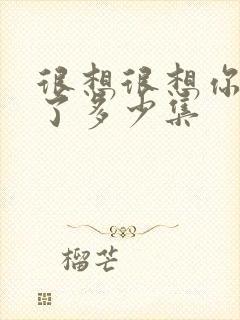 很想很想你
了多少集
榴芒